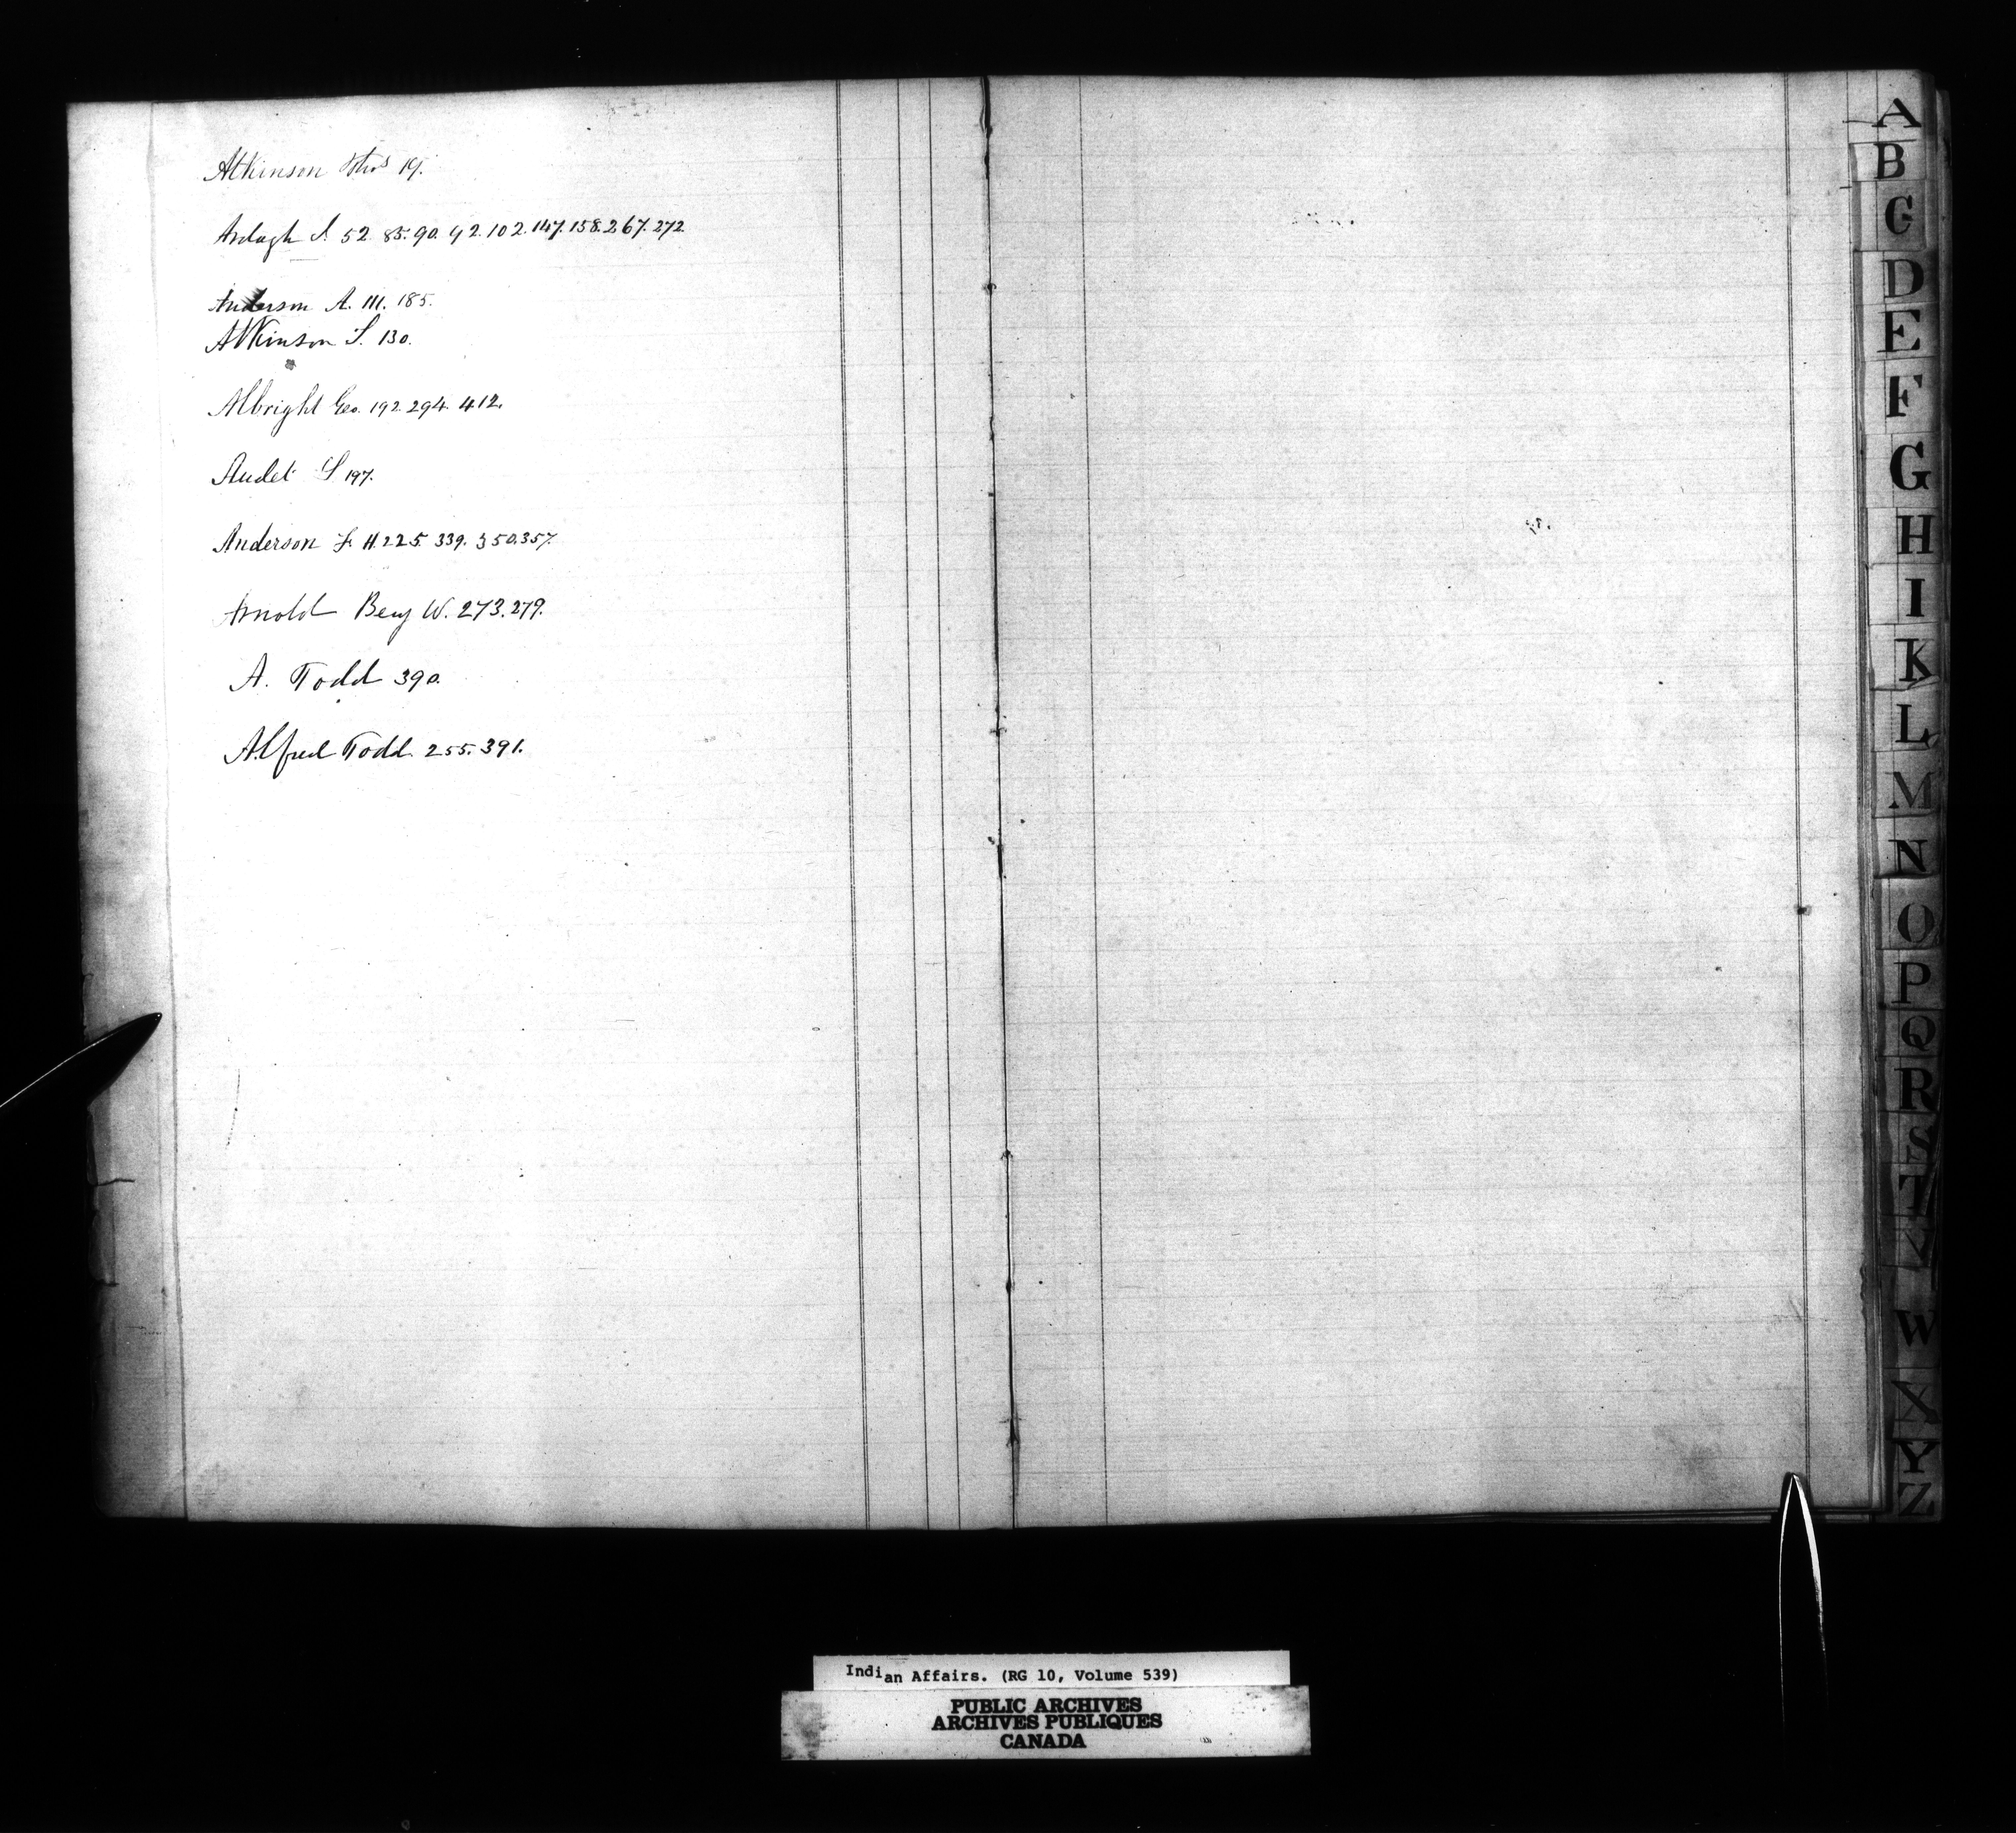 Atkinson Thos 19.
Ardagh A. 52. 85. 90. 92. 102. 147. 158. 267. 272
Anderson A. 111. 185.
Atkinson S. 130.
Albright Geo. 192. 294. 412.
Audet 197.
Anderson H. 225. 339. 350. 357.
Arnold Benj W. 273. 279.
A. Todd 390.
Alfred Todd. 255. 391.
A
B
C
D
E
F
G
H
I
K
L
M
N
O
P
Q
R
S
T
V
W
X
Y
Z
Indian Affairs. (RG 10, Volume 539)
PUBLIC ARCHIVES
ARCHIVES PUBLIQUES
CANADA